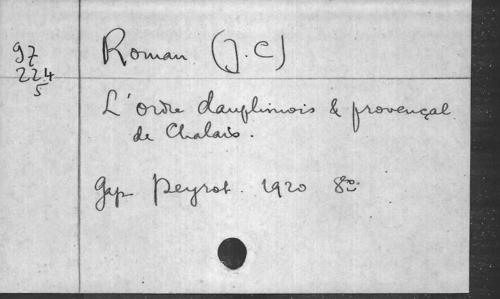 97
224
5
Roman (J. C)
L'Ordre dauphinois & provençal
de Chalais.
Gap Peyrot. 1920 8º